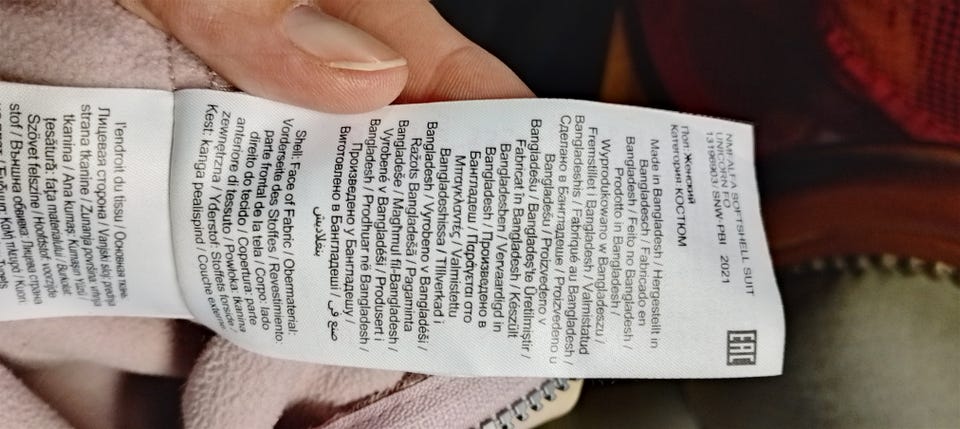 NMFALFA SOFTSHELL SUIT
UNICORN TO
13190903/ SNW-PBI 2021
EAC
Пол: Женский
Категория: КОСТЮМ
Made in Bangladesh / Hergestellt in
Bangladesch / Fabricado en
Bangladesh / Feito no Bangladesh /
Prodotto in Bangladesh /
Wyprodukowano w Bangladeszu /
Fremstillet i Bangladesh / Valmistatud
Bangladeshis / Fabriqué au Bangladesh /
Сделано в Бангладеше / Proizvedeno u
Bangladešu / Proizvedeno v
Bangladešu / Bangladeşte Üretilmiştir /
Fabricat în Bangladesh / Készült
Bangladesben / Vervaardigd in
Bangladesh / Произведено в
Бангладеш / Παράγεται στο
Μπαγκλαντές / Valmistettu
Bangladeshissa / Tillverkad i
Bangladesh / Vyrobeno v Bangladéši /
Ražots Bangladešā / Pagaminta
Bangladeše / Magħmul fil-Bangladesh /
Vyrobené v Bangladéši / Produsert i
Bangladesh / Prodhuar në Bangladesh /
Произведено у Бангладешу /
Виготовлено в Бангладеші / صنع في
بنغلاديش
Shell: Face of Fabric / Obermaterial:
Vorderseite des Stoffes / Revestimiento:
parte frontal de la tela / Corpo: lado
direito do tecido / Copertura: parte
anteriore di tessuto / Powłoka: tkanina
zewnętrzna / Yderstof: Stoffets forside /
Kest: kanga pealispind / Couche extérieure:
l'endroit du tissu / Основная ткань:
Лицевая сторона / Vanjski sloj: prednja
strana tkanine / Zunanja površina: vrhnja
tkanina / Ana kumaş: Kumaşın Yüzü /
țesătură: fața materialului / Burkolat:
Szövet felszíne / Hoofdstof: voorzijde
stof / Външна обвивка: Лицева страна